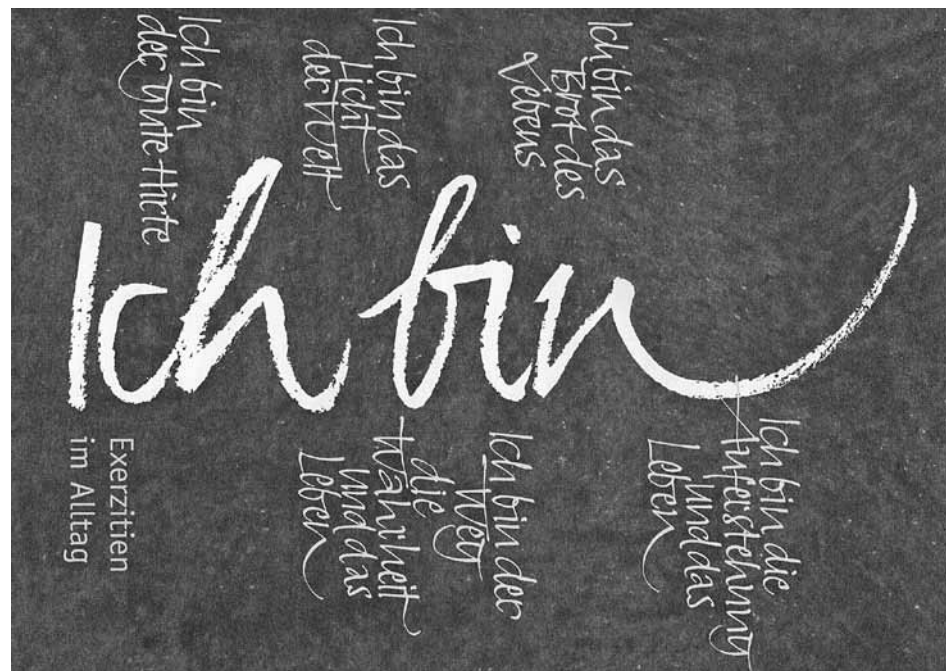 Ich bin
der gute Hirte
Ich bin das
Licht
der Welt
Ich bin das
Brot des
Lebens
Ich bin
Exerzitien
im Alltag
Ich bin der
Weg
die
Wahrheit
und das
Leben
Ich bin die
Auferstehung
und das
Leben